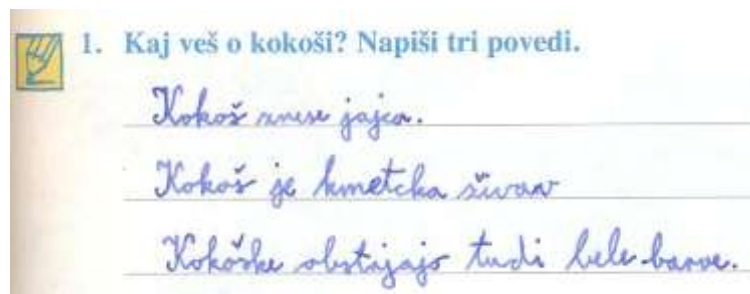 1. Kaj veš o kokoši? Napiši tri povedi.
Kokoš znese jajca.
Kokoš je kmetcka žival
Kokoške obstajajo tudi bele barve.